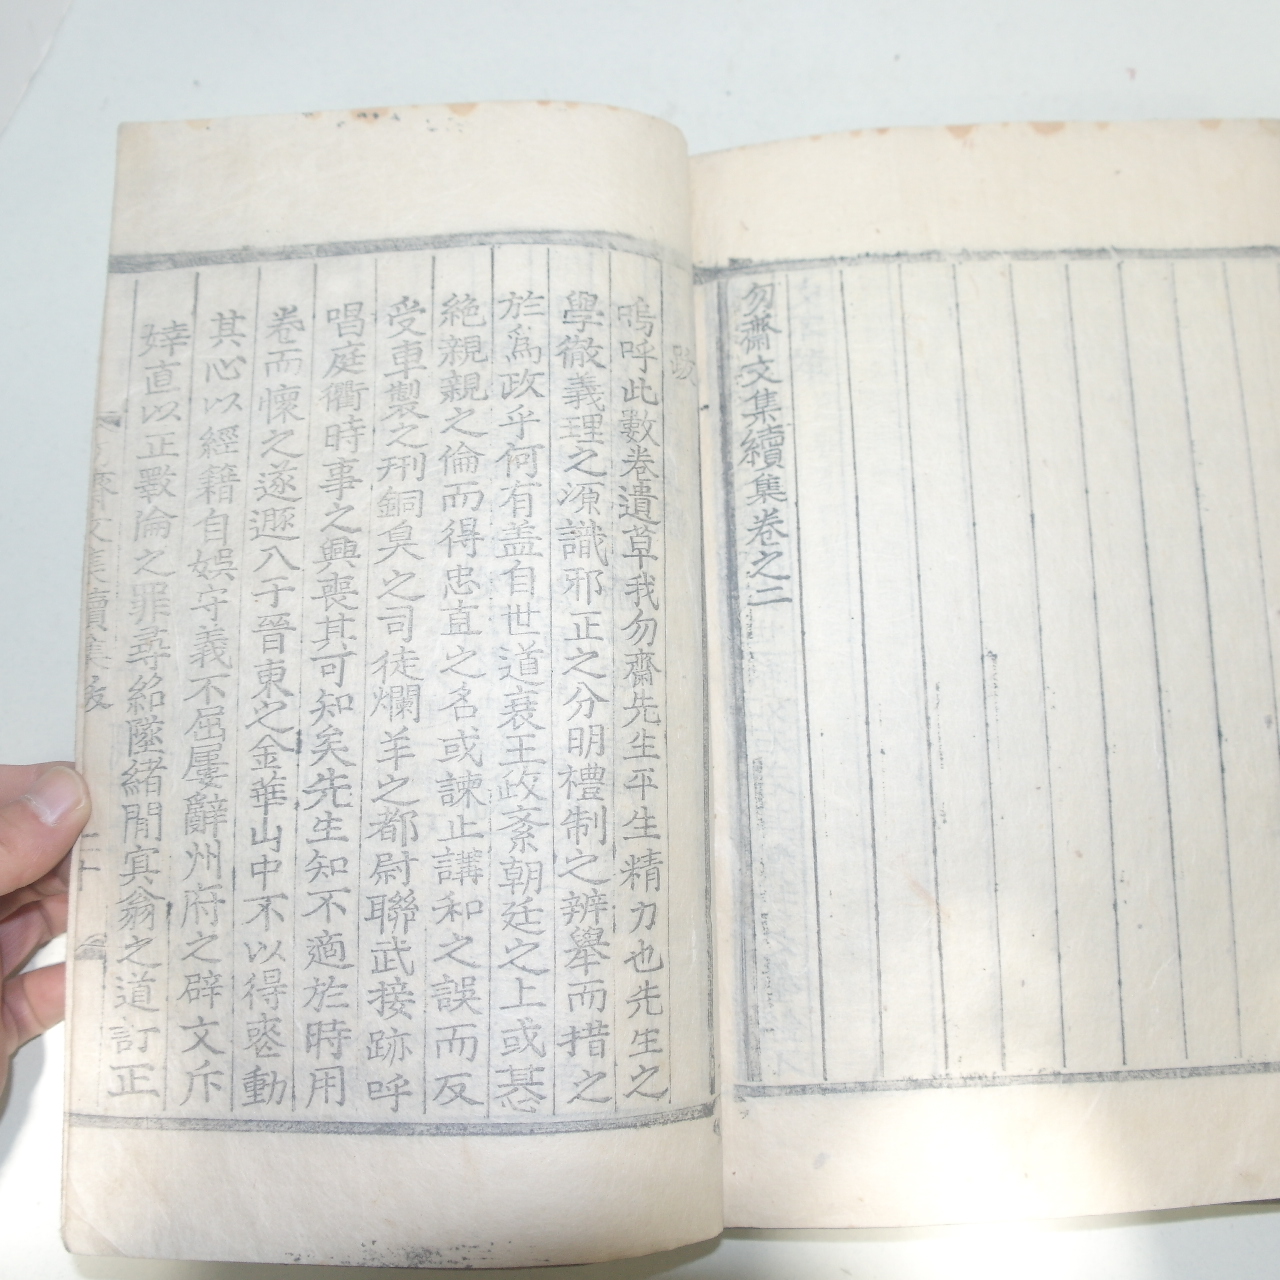 勿齋文集續集卷之二
跋
嗚呼此數卷遺草我勿齋先生平生精力也先生之
學徹義理之源識邪正之分明禮制之辨舉而措之
於爲政乎何有盖自世道衰王政紊朝廷之上或甚
絶親親之倫而得忠直之名或諫止講和之誤而反
受車製之刑銅臭之司徒爛羊之都尉聯武接跡呼
唱庭衢時事之興喪其可知矣先生知不適於時用
卷而懷之遂遯入于晉東之金華山中不以得喪動
其心以經籍自娛守義不屈屢辭州府之辟文斥
婞直以正斁倫之罪尋紹墜緖閒寅翁之道訂正
勿齋文集續集 跋 二十